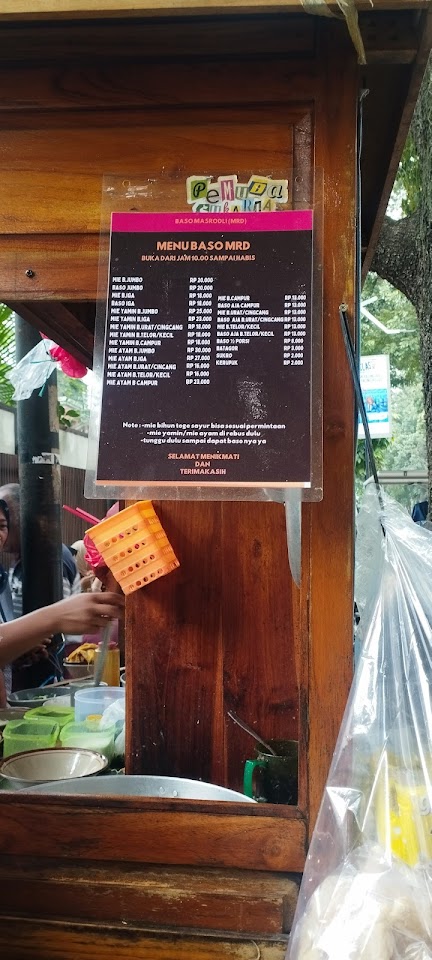 PEMUDA
GEMBIRA
BASO MASRODLI (MRD)
MENU BASO MRD
BUKA DARI JAM 10.00 SAMPAI HABIS
MIE B.JUMBO RP 20,000
BASO JUMBO RP 20,000
MIE B.IGA RP 18,000
BASO IGA RP 18,000
MIE YAMIN B.JUMBO RP 25,000
MIE YAMIN B.IGA RP 23,000
MIE YAMIN B.URAT/CINGCANG RP 18,000
MIE YAMIN B.TELOR/KECIL RP 18,000
MIE YAMIN B.CAMPUR RP 18,000
MIE AYAM B.JUMBO RP 30,000
MIE AYAM B.IGA RP 27,000
MIE AYAM B.URAT/CINCANG RP 19,000
MIE AYAM B.TELOR/KECIL RP 19,000
MIE AYAM B CAMPUR RP 23,000
MIE B.CAMPUR RP 15.000
BASO AJA CAMPUR RP 15.000
MIE B.URAT/CINGCANG RP 13.000
BASO AJA B.URAT/CINGCANG RP 13.000
MIE B.TELOR/KECIL RP 13.000
BASO AJA B.TELOR/KECIL RP 13.000
BASO ½ PORSI RP 8.000
BATAGOR RP 3.000
SUKRO RP 2.000
KERUPUK RP 2.000
Note : -mie bihun toge sayur bisa sesuai permintaan
-mie yamin/mie ayam di rebus dulu
-tunggu dulu sampai dapat baso nya ya
SELAMAT MENIKMATI
DAN
TERIMAKASIH